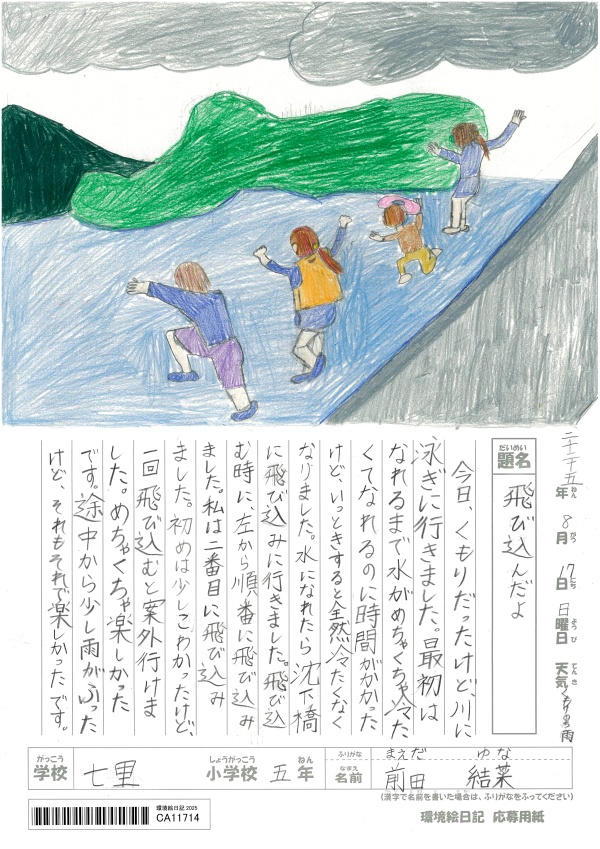 二千二十五年 8月 17日 日曜日 天気 くもりのち雨
題名 飛び込んだよ
今日、くもりだったけど、川に
泳ぎに行きました。最初は
なれるまで水がめちゃくちゃ冷た
くてなれるのに時間がかかった
けど、いっときすると全然冷たくなく
なりました。水になれたら沈下橋
に飛び込みに行きました。飛び込
む時に左から順番に飛び込み
ました。私は二番目に飛び込み
ました。初めは少しこわかったけど、
一回飛び込むと案外行けま
した。めちゃくちゃ楽しかった
です。途中から少し雨がふった
けど、それもそれで楽しかったです。
がっこう しょうがっこう ねん ふりがな まえだ ゆな
学校 七里 小学校 五年 名前 前田 結菜
(漢字で名前を書いた場合は、ふりがなをふってください)
環境絵日記2025
CA11714
環境絵日記 応募用紙